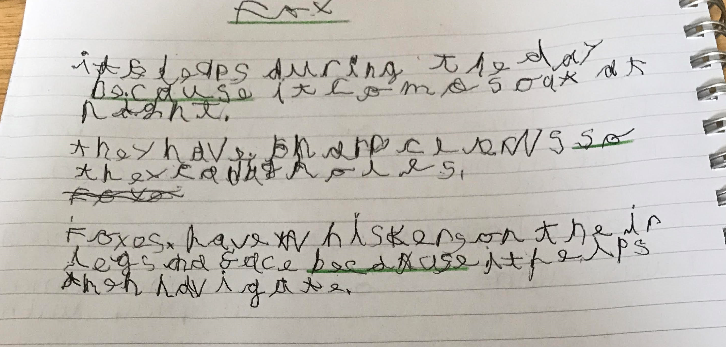 Fox
its leeps during the day
because it comes out at
night.
they have sharp claws so
they can dig holes.
Foxes have whiskers on their
legs and face because it helps
them navigate.